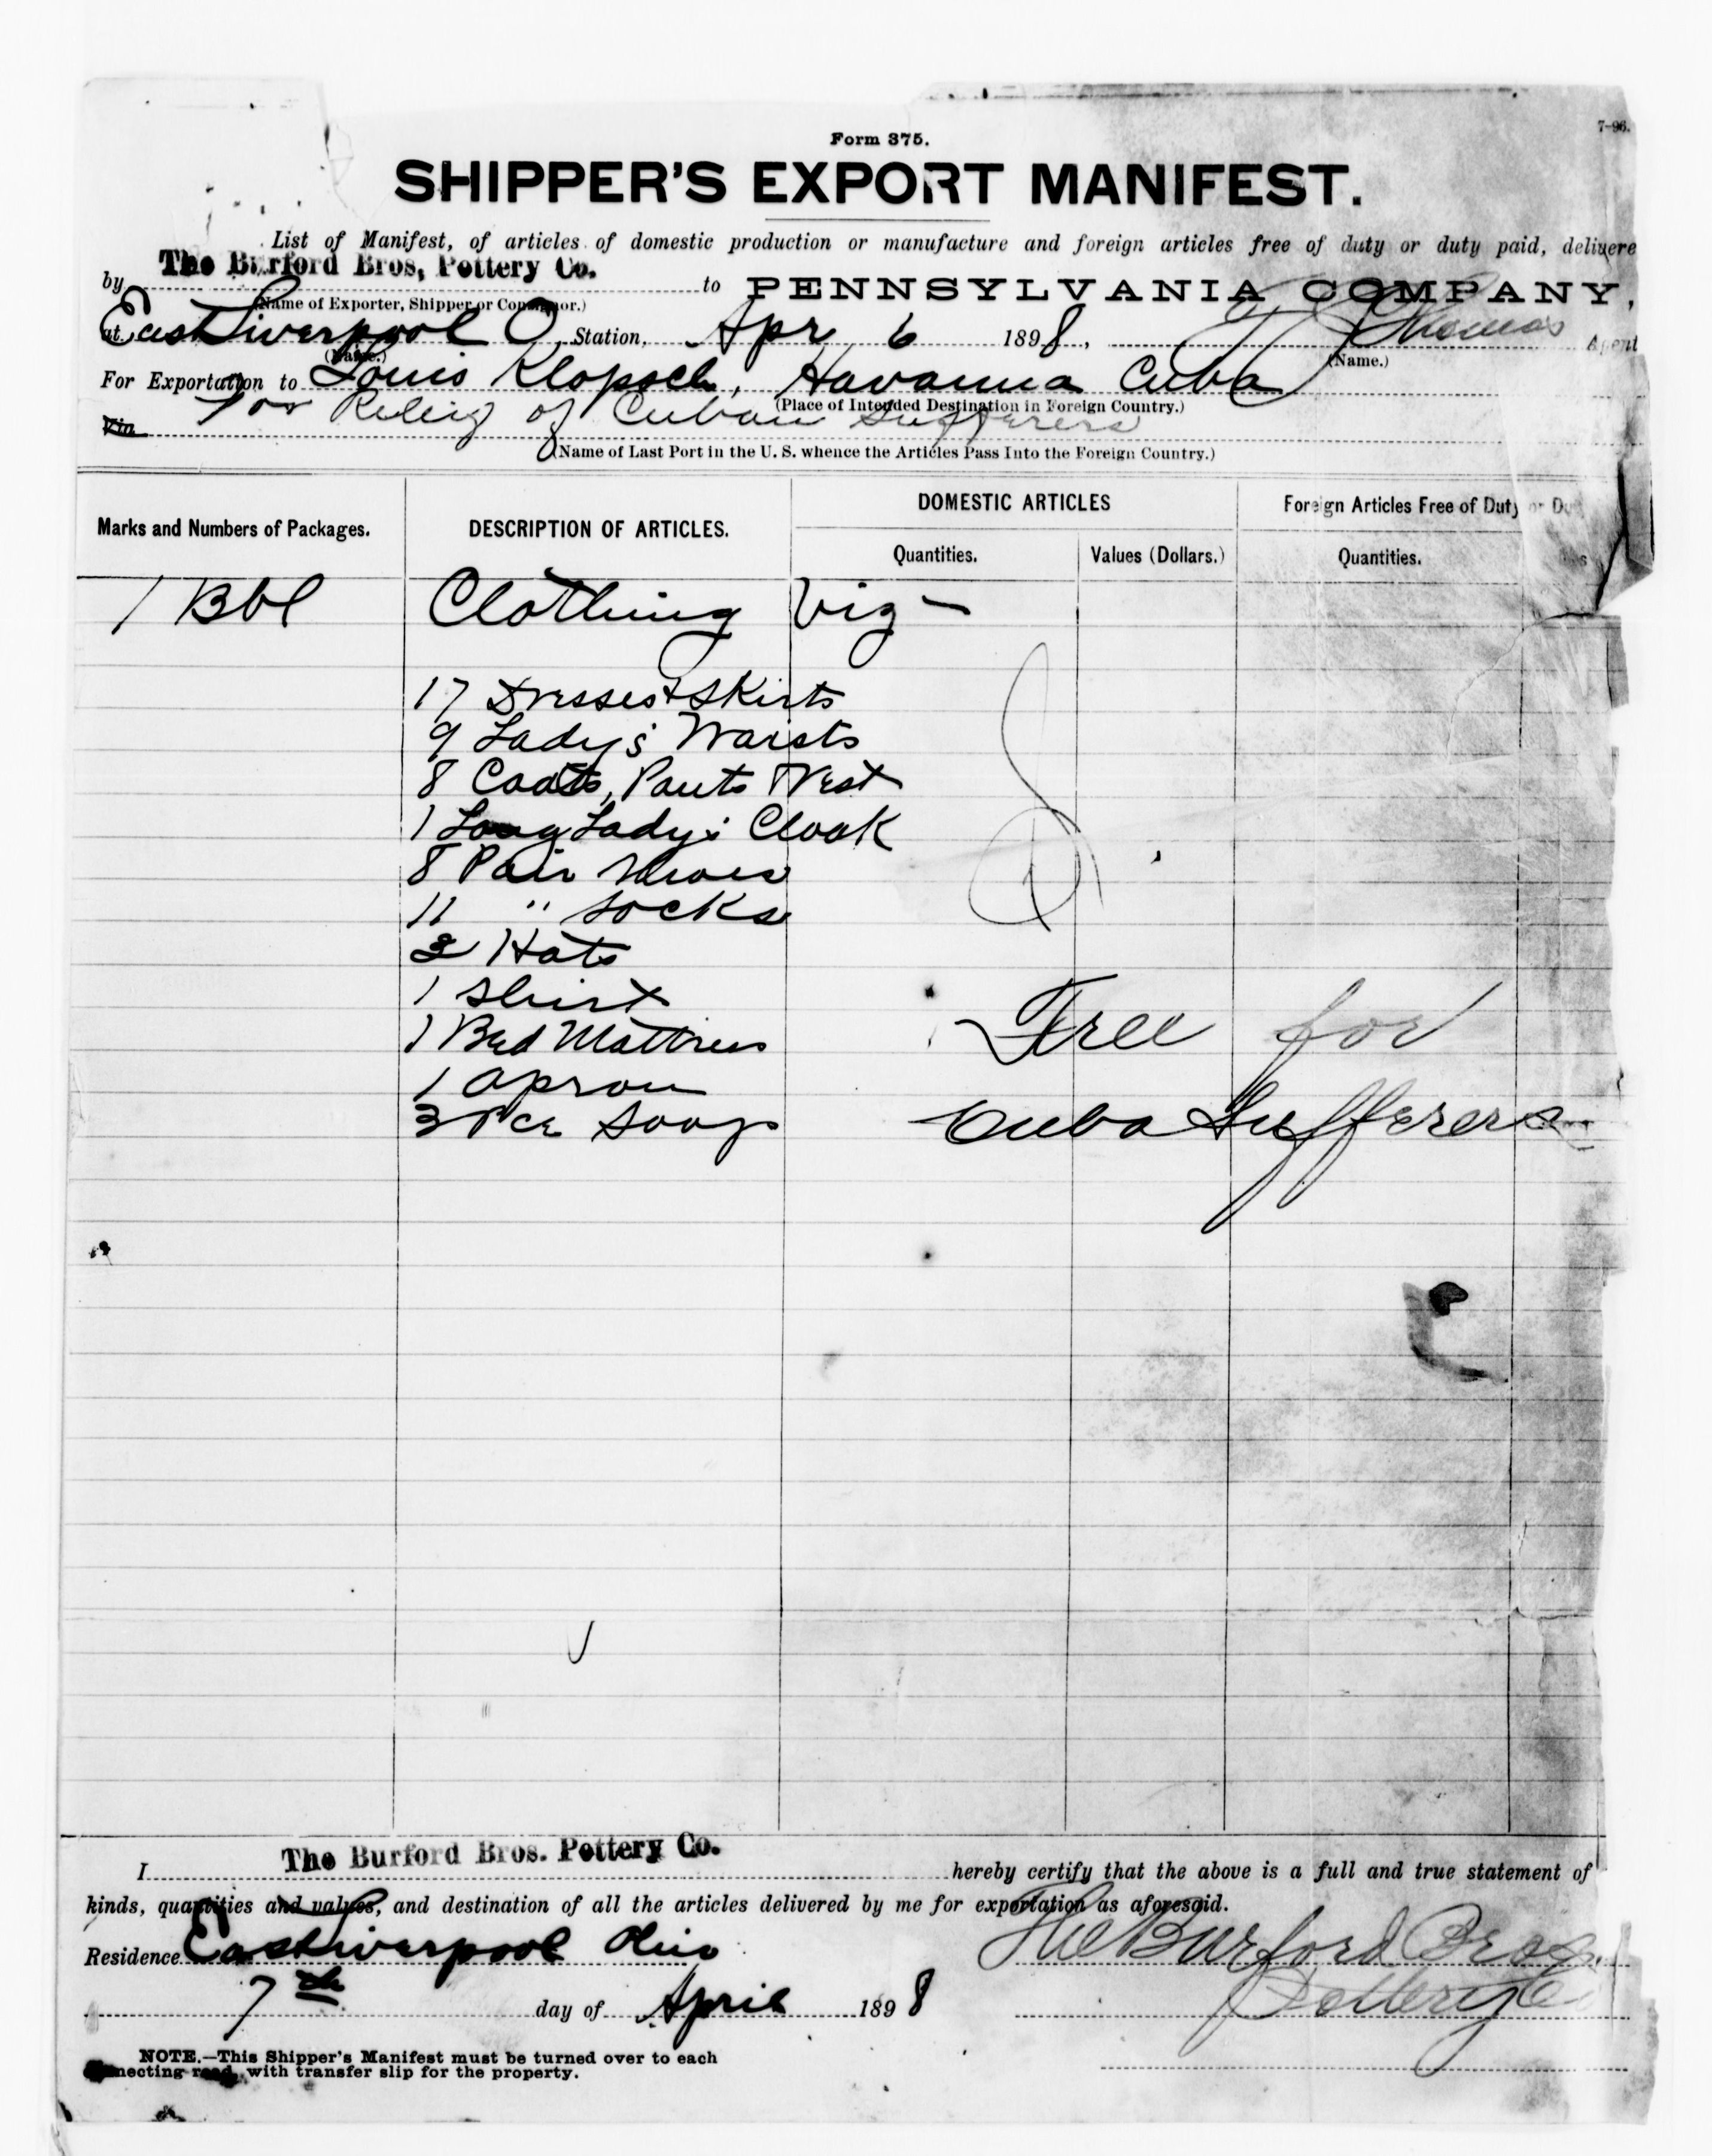 7-96.
Form 375.
SHIPPER'S EXPORT MANIFEST.
List of Manifest, of articles of domestic production or manufacture and foreign articles free of duty or duty paid, delivere
by The Burford Bros, Pottery Co. to PENNSYLVANIA COMPANY,
(Name of Exporter, Shipper or Consignor.)
at East Liverpool O Station, Apr 6 1898, Thomas Agent
(Name.) (Name.)
For Exportation to Louis Klopsch, Havanna Cuba
(Place of Intended Destination in Foreign Country.)
Via For Relief of Cuban Sufferers
(Name of Last Port in the U. S. whence the Articles Pass Into the Foreign Country.)
Marks and Numbers of Packages. DESCRIPTION OF ARTICLES. DOMESTIC ARTICLES Foreign Articles Free of Duty or Du
Quantities. Values (Dollars.) Quantities.
1 Bbl Clothing Viz -
17 Dresses & Skirts
9 Lady's Waists
8 Coats, Pants & Vest
1 Long Lady's Cloak
8 Pair Shoes
11 " Socks
3 Hats
1 Shirt
1 Bed Mattress Free for
1 Apron
3 Pce Soap Cuba Sufferers
I The Burford Bros. Pottery Co. hereby certify that the above is a full and true statement of
kinds, quantities and values, and destination of all the articles delivered by me for exportation as aforesaid.
Residence East Liverpool Ohio The Burford Bros.
7th day of April 1898 Pottery Co
NOTE.—This Shipper's Manifest must be turned over to each
connecting road, with transfer slip for the property.